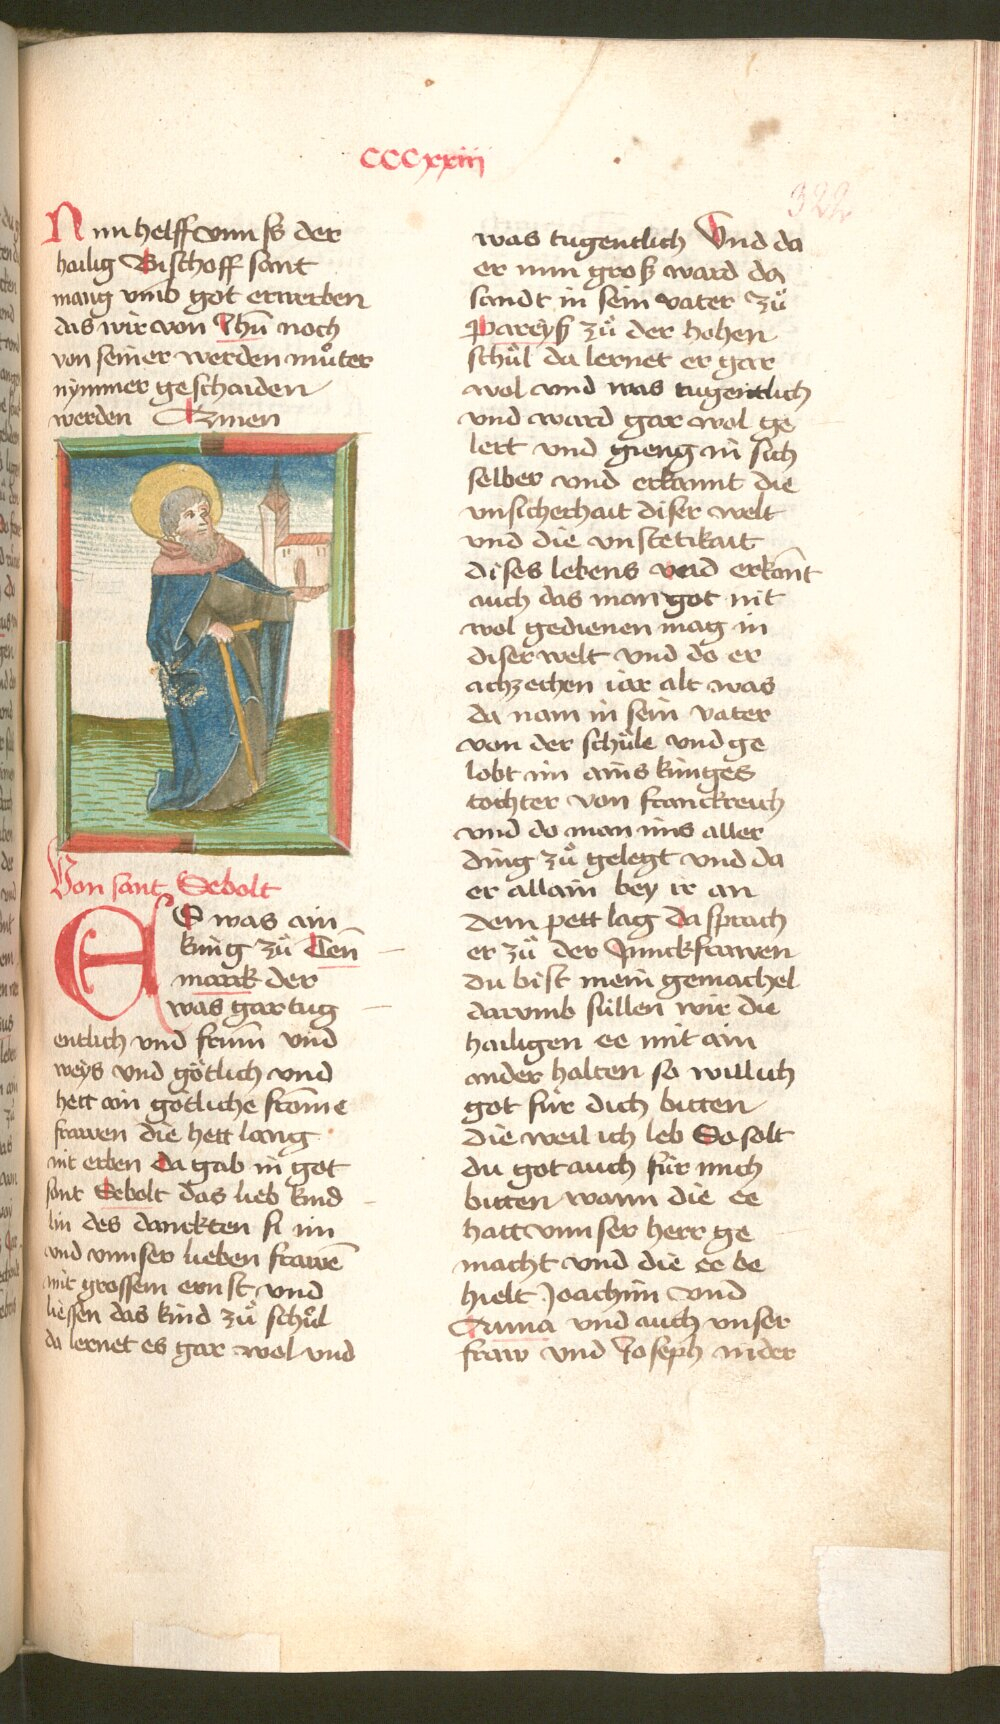 CCCxxiii
322
Nun helff vnns der
hailig Bischoff sant
mang vmb got erwerben
das wir von Jhū noch
von seiner werden můter
nymmer geschaiden
werden Amen
Von sant Sebolt
ES was ain
king zů Ten̄
marck der
was gar tug
entlich vnd frum̄ vnd
weys vnd götlich vnd
hett ain götliche from̄e
frawen die hett lang
nit erben Da gab in got
sant Sebolt das lieb kind
lin des danckten si im
vnd vnnser lieben frawē
mit grossem ernst vnd
liessen das kind zů schůl
da lernet es gar wol vnd
was tugentlich Vnd da
er nun groß ward da
sandt in sein vater zů
Pareyß zů der hohen
schůl da lernet er gar
wol vnd was tugentlich
vnd ward gar wol ge
lert vnd gieng in sich
selber vnd erkannt die
vnsicherhait diser welt
vnd die vnstetikait
dises lebens vnd erkan̄t
auch das man got nit
wol gedienen mag in
diser welt vnd do er
achzechen iar alt was
da nam in sein vater
von der schůle vnd ge
lobt im ains kinges
tochter von franckreich
vnd do man ims aller
ding zů gelegt vnd da
er allain bey ir an
dem pett lag da sprach
er zů der Junckfrawen
du bist mein gemachel
darumb süllen wir die
hailigen ee mit ain
ander halten so will ich
got für dich bitten
die weil ich leb So solt
du got auch für mich
bitten wann die ee
hatt vnnser herr ge
macht vnd die ee be
hielt Joachim vnd
Anna vnd auch vnser
fraw vnd Joseph nider